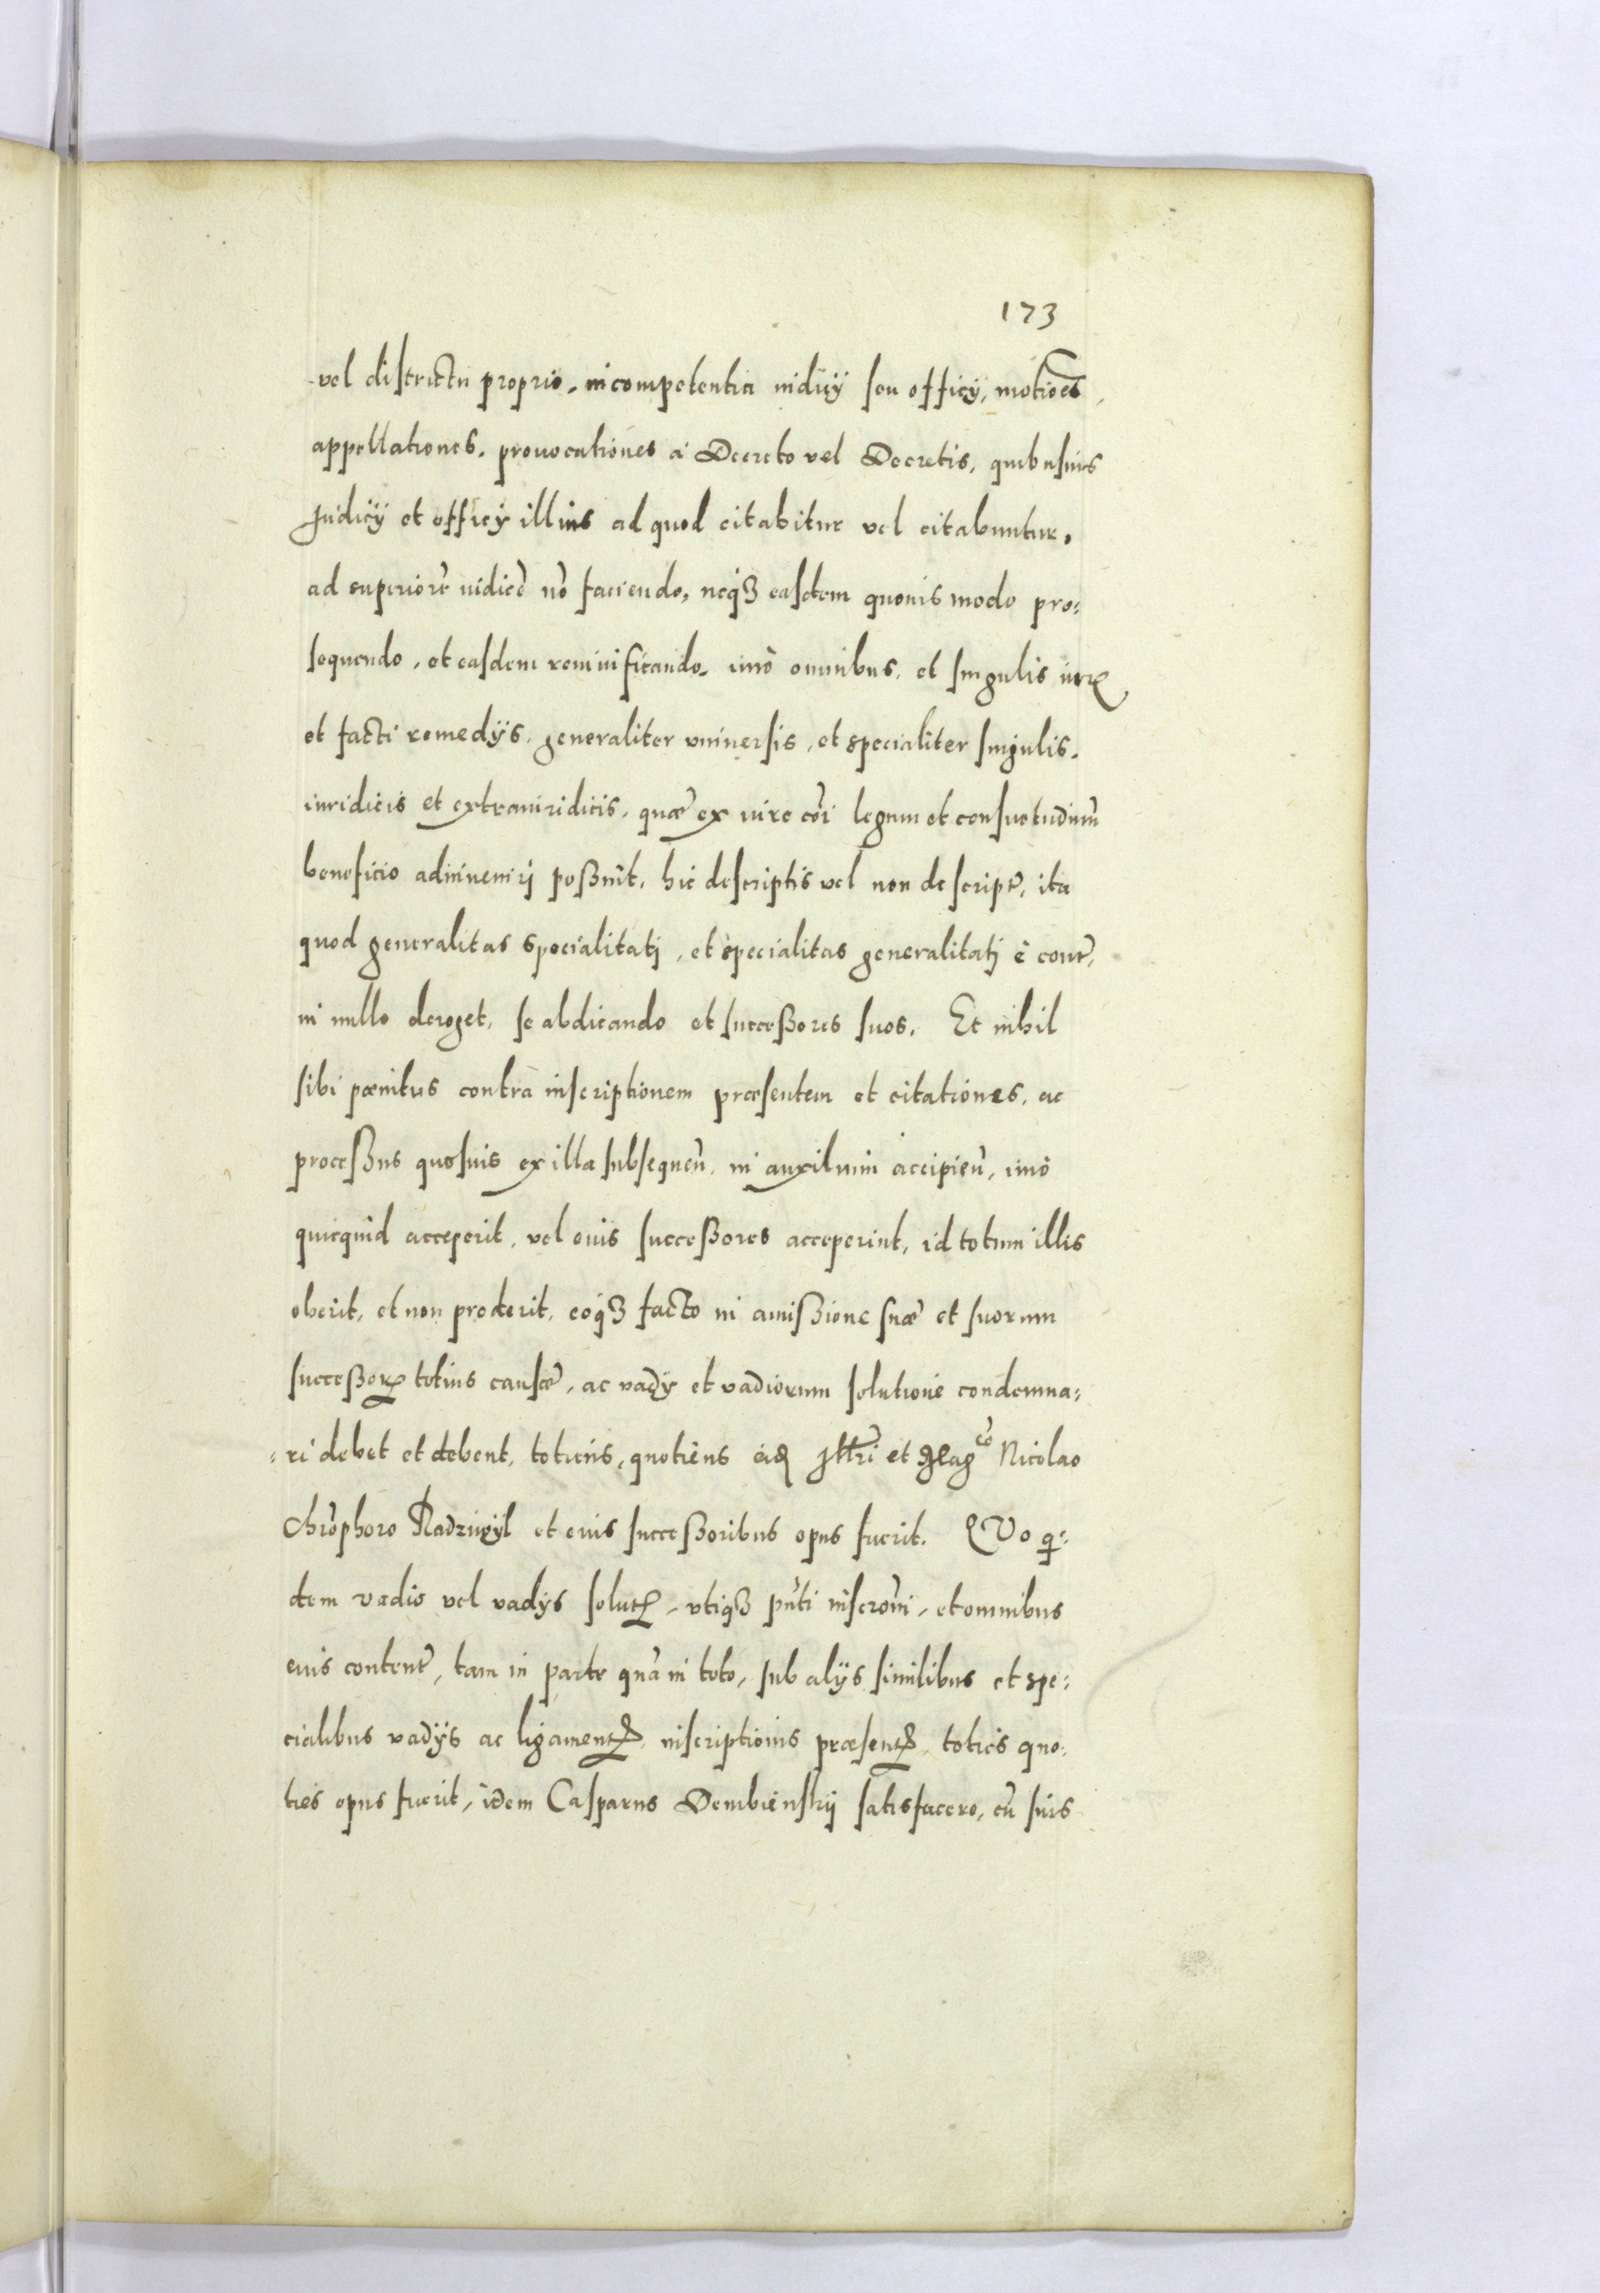 173
vel districtu proprio, incompetentia iudicÿ seu officÿ, motiões,
appellationes, prouocationes à Decreto vel Decretis, quibusuis
Judicÿ et officÿ illius ad quod citabitur vel citabuntur,
ad superiorẽ iudicẽ nõ faciendo, neqꝫ easdem quouis modo pro:
sequendo, et easdem reiuificando, imò omnibus, et singulis iurꝭ
et facti remedÿs, generaliter vniuersis, et specialiter singulis,
iuridicis et extraiuridicis, quæ ex iure cõi legum et consuetudinũ
beneficio adinuenirj poßũt, hic descriptis vel non descript̃, ita
quod generalitas specialitatj, et specialitas generalitatj è cont̃,
in nullo deroget, se abdicando et succeßores suos. Et nihil
sibi pœnitus contrà inscriptionem præsentem et citationes, ac
proceßus quosuis ex illa subsequeñ, in auxilium accipieñ, imò
quicquid acceperit, vel eius succeßores acceperint, id totum illis
oberit, et non proderit, eoqꝫ facto in amißione suæ et suorum
succeßorꝝ totius causæ, ac vadÿ et vadiorum solutione condemna:
:ri debet et debent, totiens, quotiens eidẽ Jllr̃i et Mag^co Nicolao
Chrõphoro Radziwÿl et eius succeßoribus opus fuerit. QVo q̃:
dem vadio vel vadÿs solutꝭ, vtiqꝫ pñti inscrõni, et omnibus
eius content̃, tam in parte quã in toto, sub alÿs similibus et spe:
cialibus vadÿs ac ligamentꝭ, inscriptionis præsentꝭ, toties quo:
ties opus fuerit, idem Casparus Dembienskij satisfacere, cũ suis